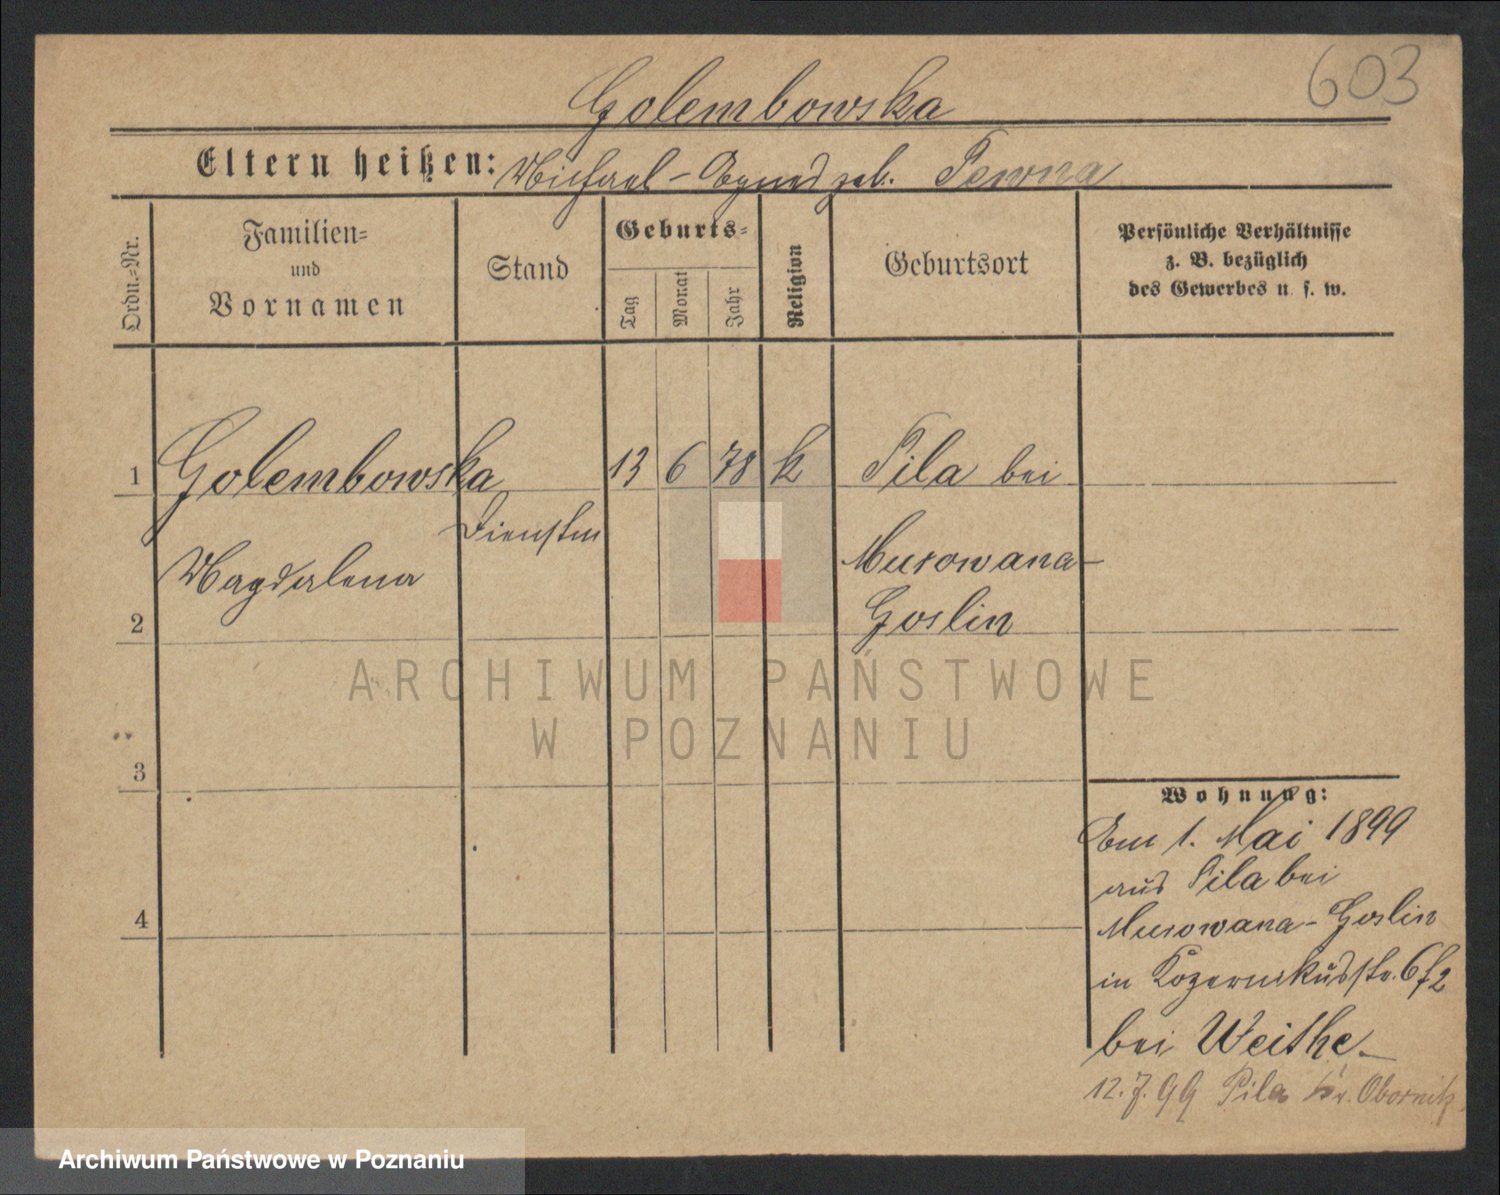 603
Golembowska
Eltern heißen: Michael - Agnes geb. Pewna
Ordn.-Nr.
Familien-
und
Vornamen
Stand
Geburts-
Tag
Monat
Jahr
Religion
Geburtsort
Persönliche Verhältnisse
z. B. bezüglich
des Gewerbes u. s. w.
1 Golembowska 13 6 78 k Pila bei
Dienstm
Murowana-
Magdalena
Goslin
2
ARCHIWUM PAŃSTWOWE
W POZNANIU
3
Wohnung:
Am 1. Mai 1899
aus Pila bei
Murowana-Goslin
4
in
bei Weithe
12.7.99 Pila Kr. Obornik
Archiwum Państwowe w Poznaniu